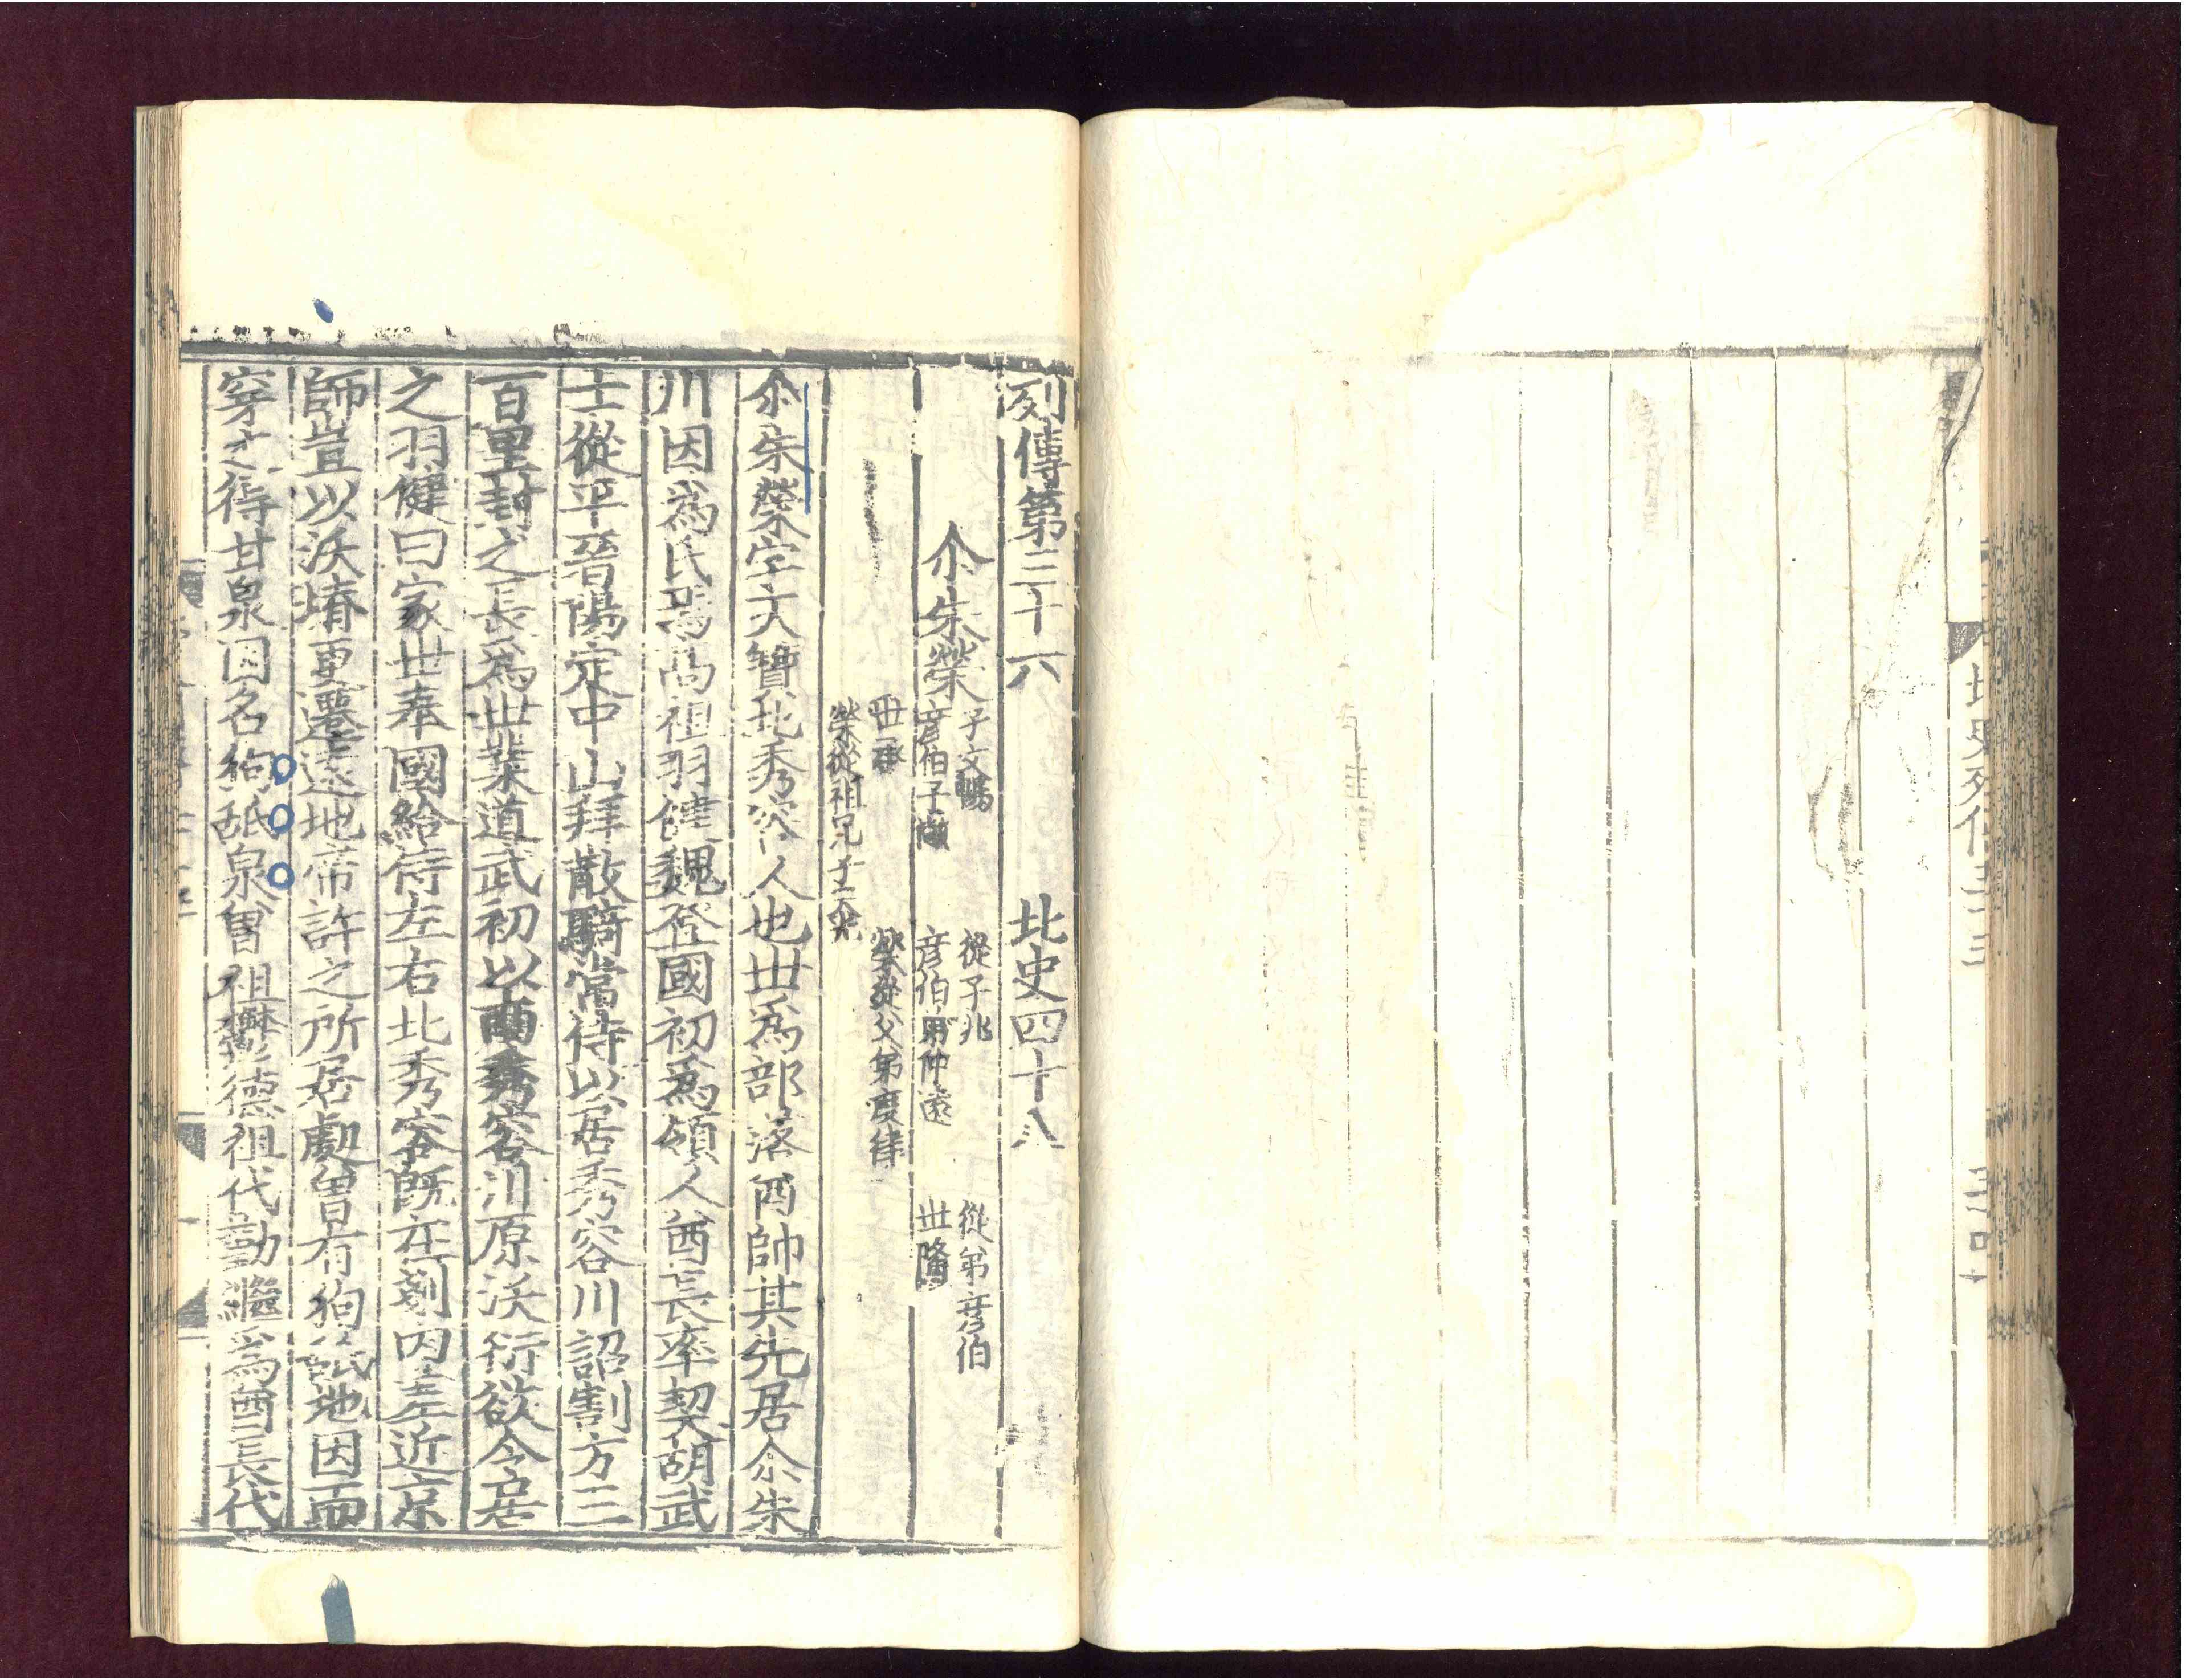 北史列傳三十三
三十
列傳第三十六 北史四十八
尒朱榮 子文暢 從子兆 從弟彥伯
彥伯子敞 彥伯弟仲遠 世隆
世承 榮從父弟度律
榮從祖兄子天光
尒朱榮字天寶北秀容人也世爲部落酋帥其先居尒朱
川因爲氏焉高祖羽健魏登國初爲領人酋長率契胡武
士從平晉陽定中山拜散騎常侍以居秀容川詔割方三
百里封之長爲世業道武初以南秀容川原沃衍欲令居
之羽健曰家世奉國給侍左右北秀容旣在剗內差近京
師豈以沃塉更遷遠地帝許之所居處曾有狗舐地因而
穿之得甘泉因名狗舐泉曾祖鬱德祖代勤繼爲酋長代